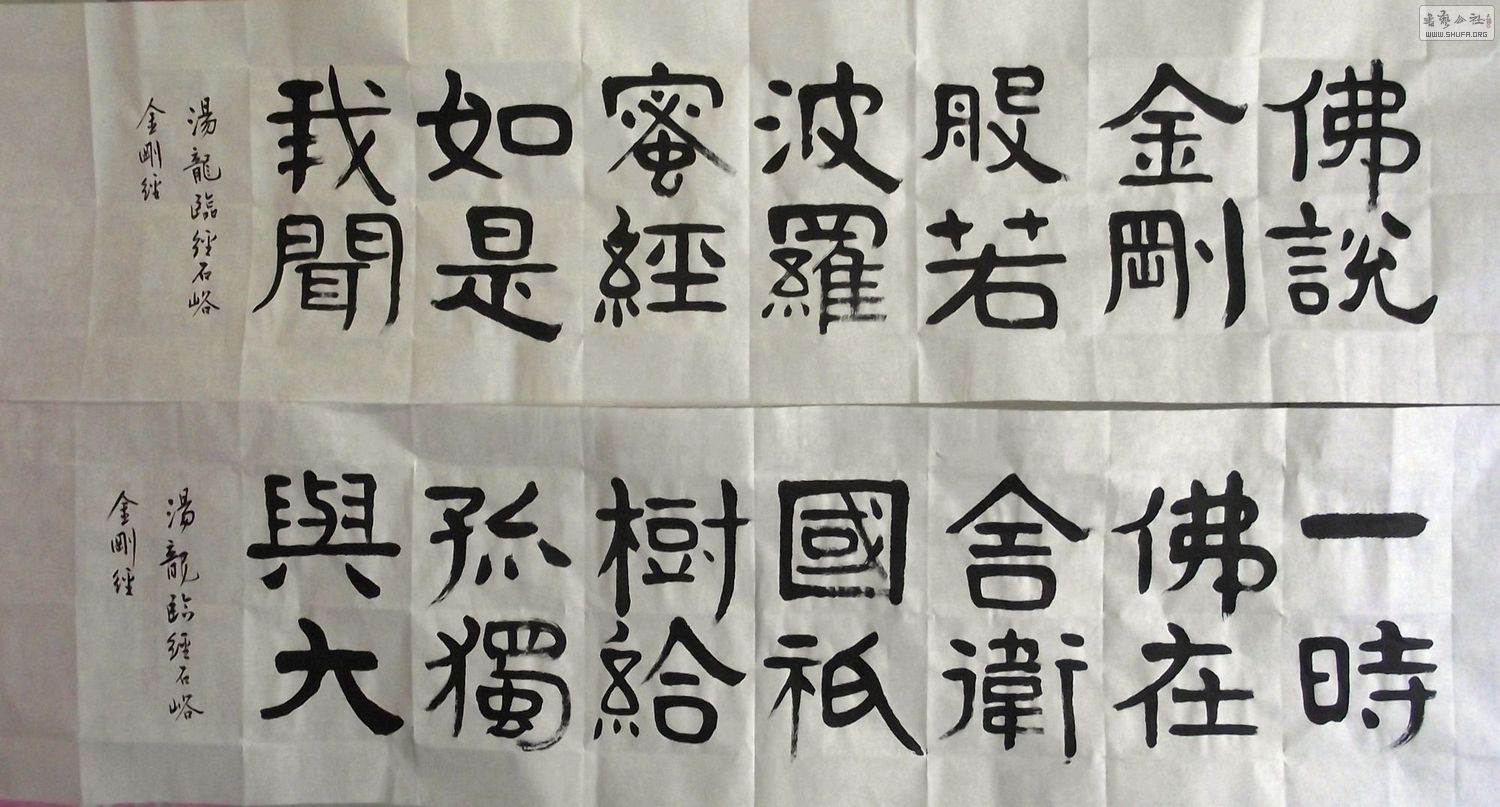 佛說
金剛
般若
波羅
蜜經
如是
我聞
湯龍臨經石峪
金剛經
一時
佛在
舍衛
國祇
樹給
孤獨
與大
湯龍臨經石峪
金剛經
書藝公社
WWW.SHUFA.ORG